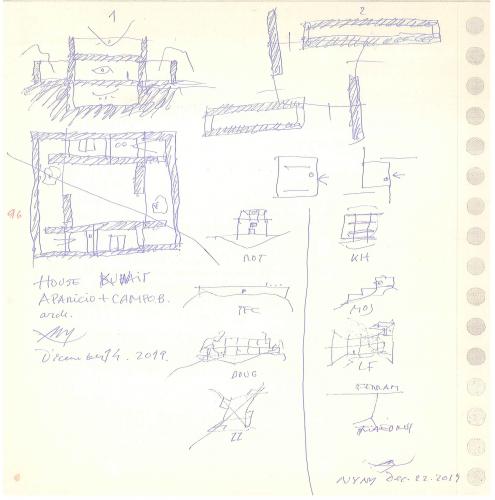 1
2
96
HOUSE KUWAIT
APARICIO + CAMPO B.
arch.
December 14. 2019.
ROT
KH
PFC
MOS
DOUG
LF
ZZ
NYNY Dec. 22. 2019